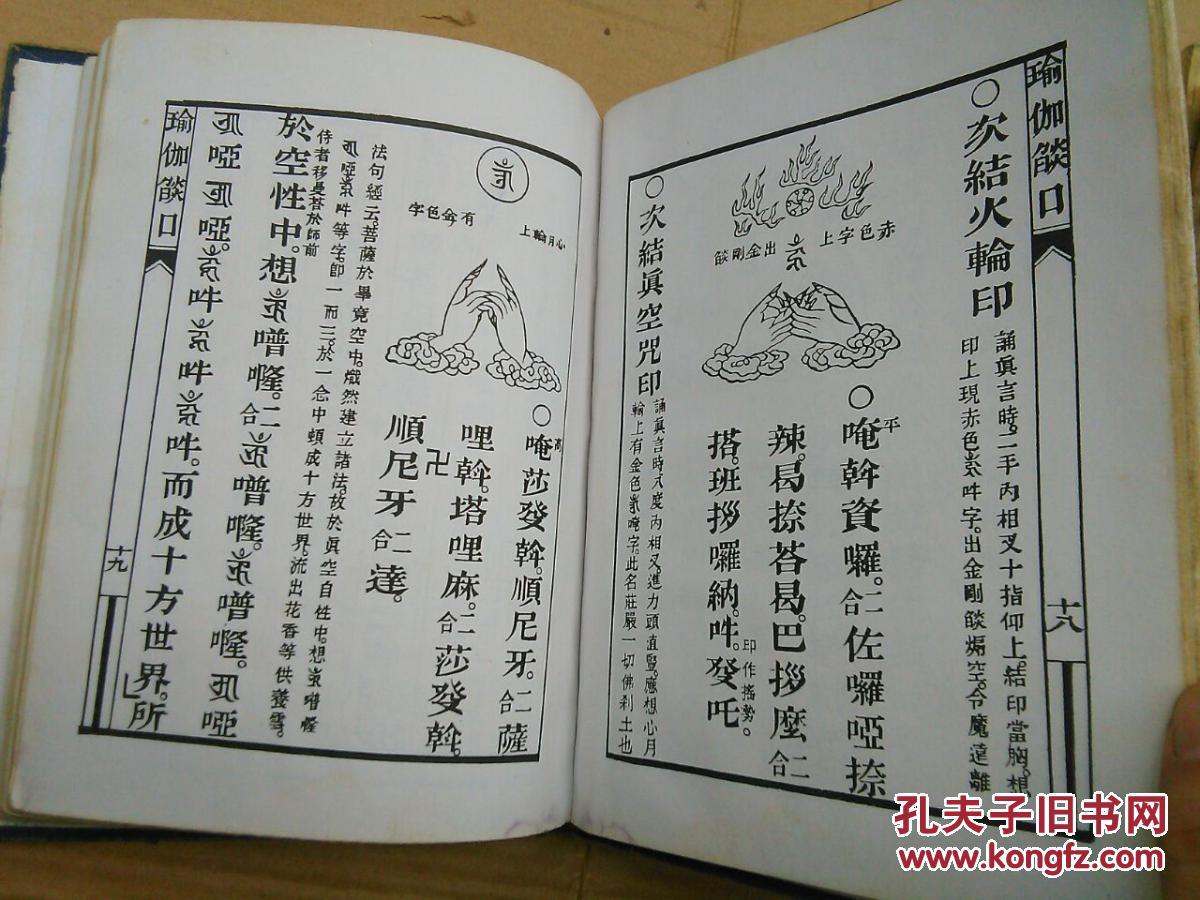 瑜伽燄口
十八
○次結火輪印
誦眞言時。二手內相叉十指仰上。結印當胸。想
印上現赤色吽字。出金剛燄煽空。令魔遠離
赤色字上
出金剛燄
○唵平斡資囉。二合佐囉啞捺
辣。曷捺荅曷。巴拶麼二合
搭。班拶囉納。吽。發吒
印作搖勢。
○次結眞空咒印
誦眞言時。八度內相叉。進力頭直豎。應想心月
輪上有金色唵字。此名莊嚴一切佛剎土也
心月輪上
有金色字
○唵莎發斡。順尼牙。二合薩
哩斡。塔哩麻。二合莎發斡。
卍
順尼牙二合達。
法句經云。菩薩於畢竟空中。熾然建立諸法。故於眞空自性中。想噆㘕
啞吽等字。卽一而三。於一念中頓成十方世界。流出花香等供養雲。
侍者移曼荅於師前
於空性中。想噆㘕。二合噆㘕。噆㘕。啞
啞啞。吽吽吽。而成十方世界。所
瑜伽燄口
十九
孔夫子旧书网
www.kongfz.com